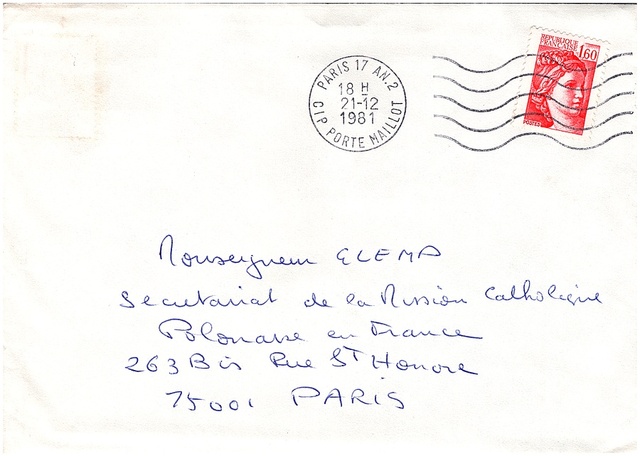 REPUBLIQUE
FRANCAISE
1,60
PARIS 17 AN.2
18 H
21-12
1981
CIP PORTE MAILLOT
Monseigneur ELEMA
Secretariat de la Mission Catholique
Polonaise en France
263 Bis Rue ST Honore
75001 PARIS